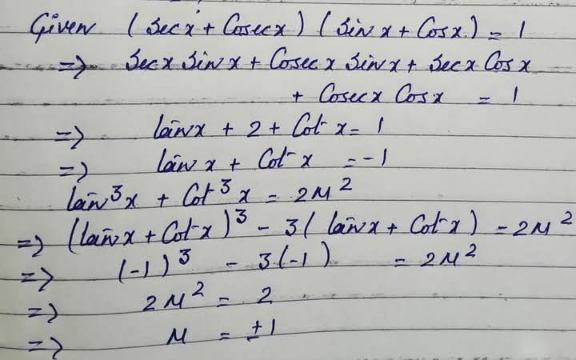 Given (Secx + Cosecx) (Sinx + Cosx) = 1
=> Secx Sinx + Cosecx Sinx + Secx Cosx
+ Cosecx Cosx = 1
=> tanx + 2 + Cot x = 1
=> tanx + Cot x = -1
tan³x + Cot³x = 2M²
=> (tanx + Cot x)³ - 3(tanx + Cot x) = 2M²
=> (-1)³ - 3(-1) = 2M²
=> 2M² = 2
=> M = ±1